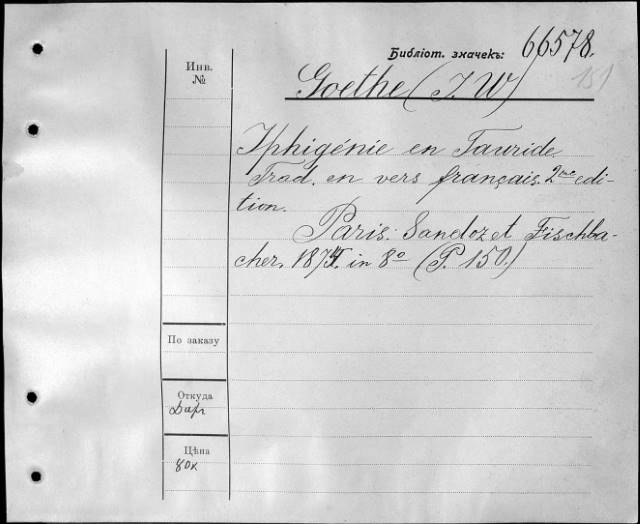 Библіот. значекъ: 66578.
151
Инв.
№
Goethe (J. W)
Iphigénie en Tauride.
Trad. en vers français. 2me edi-
tion.
Paris. Sandoz et Fischba-
cher. 1874. in 8o (P. 150.)
По заказу
Откуда
Даръ
Цѣна
80к